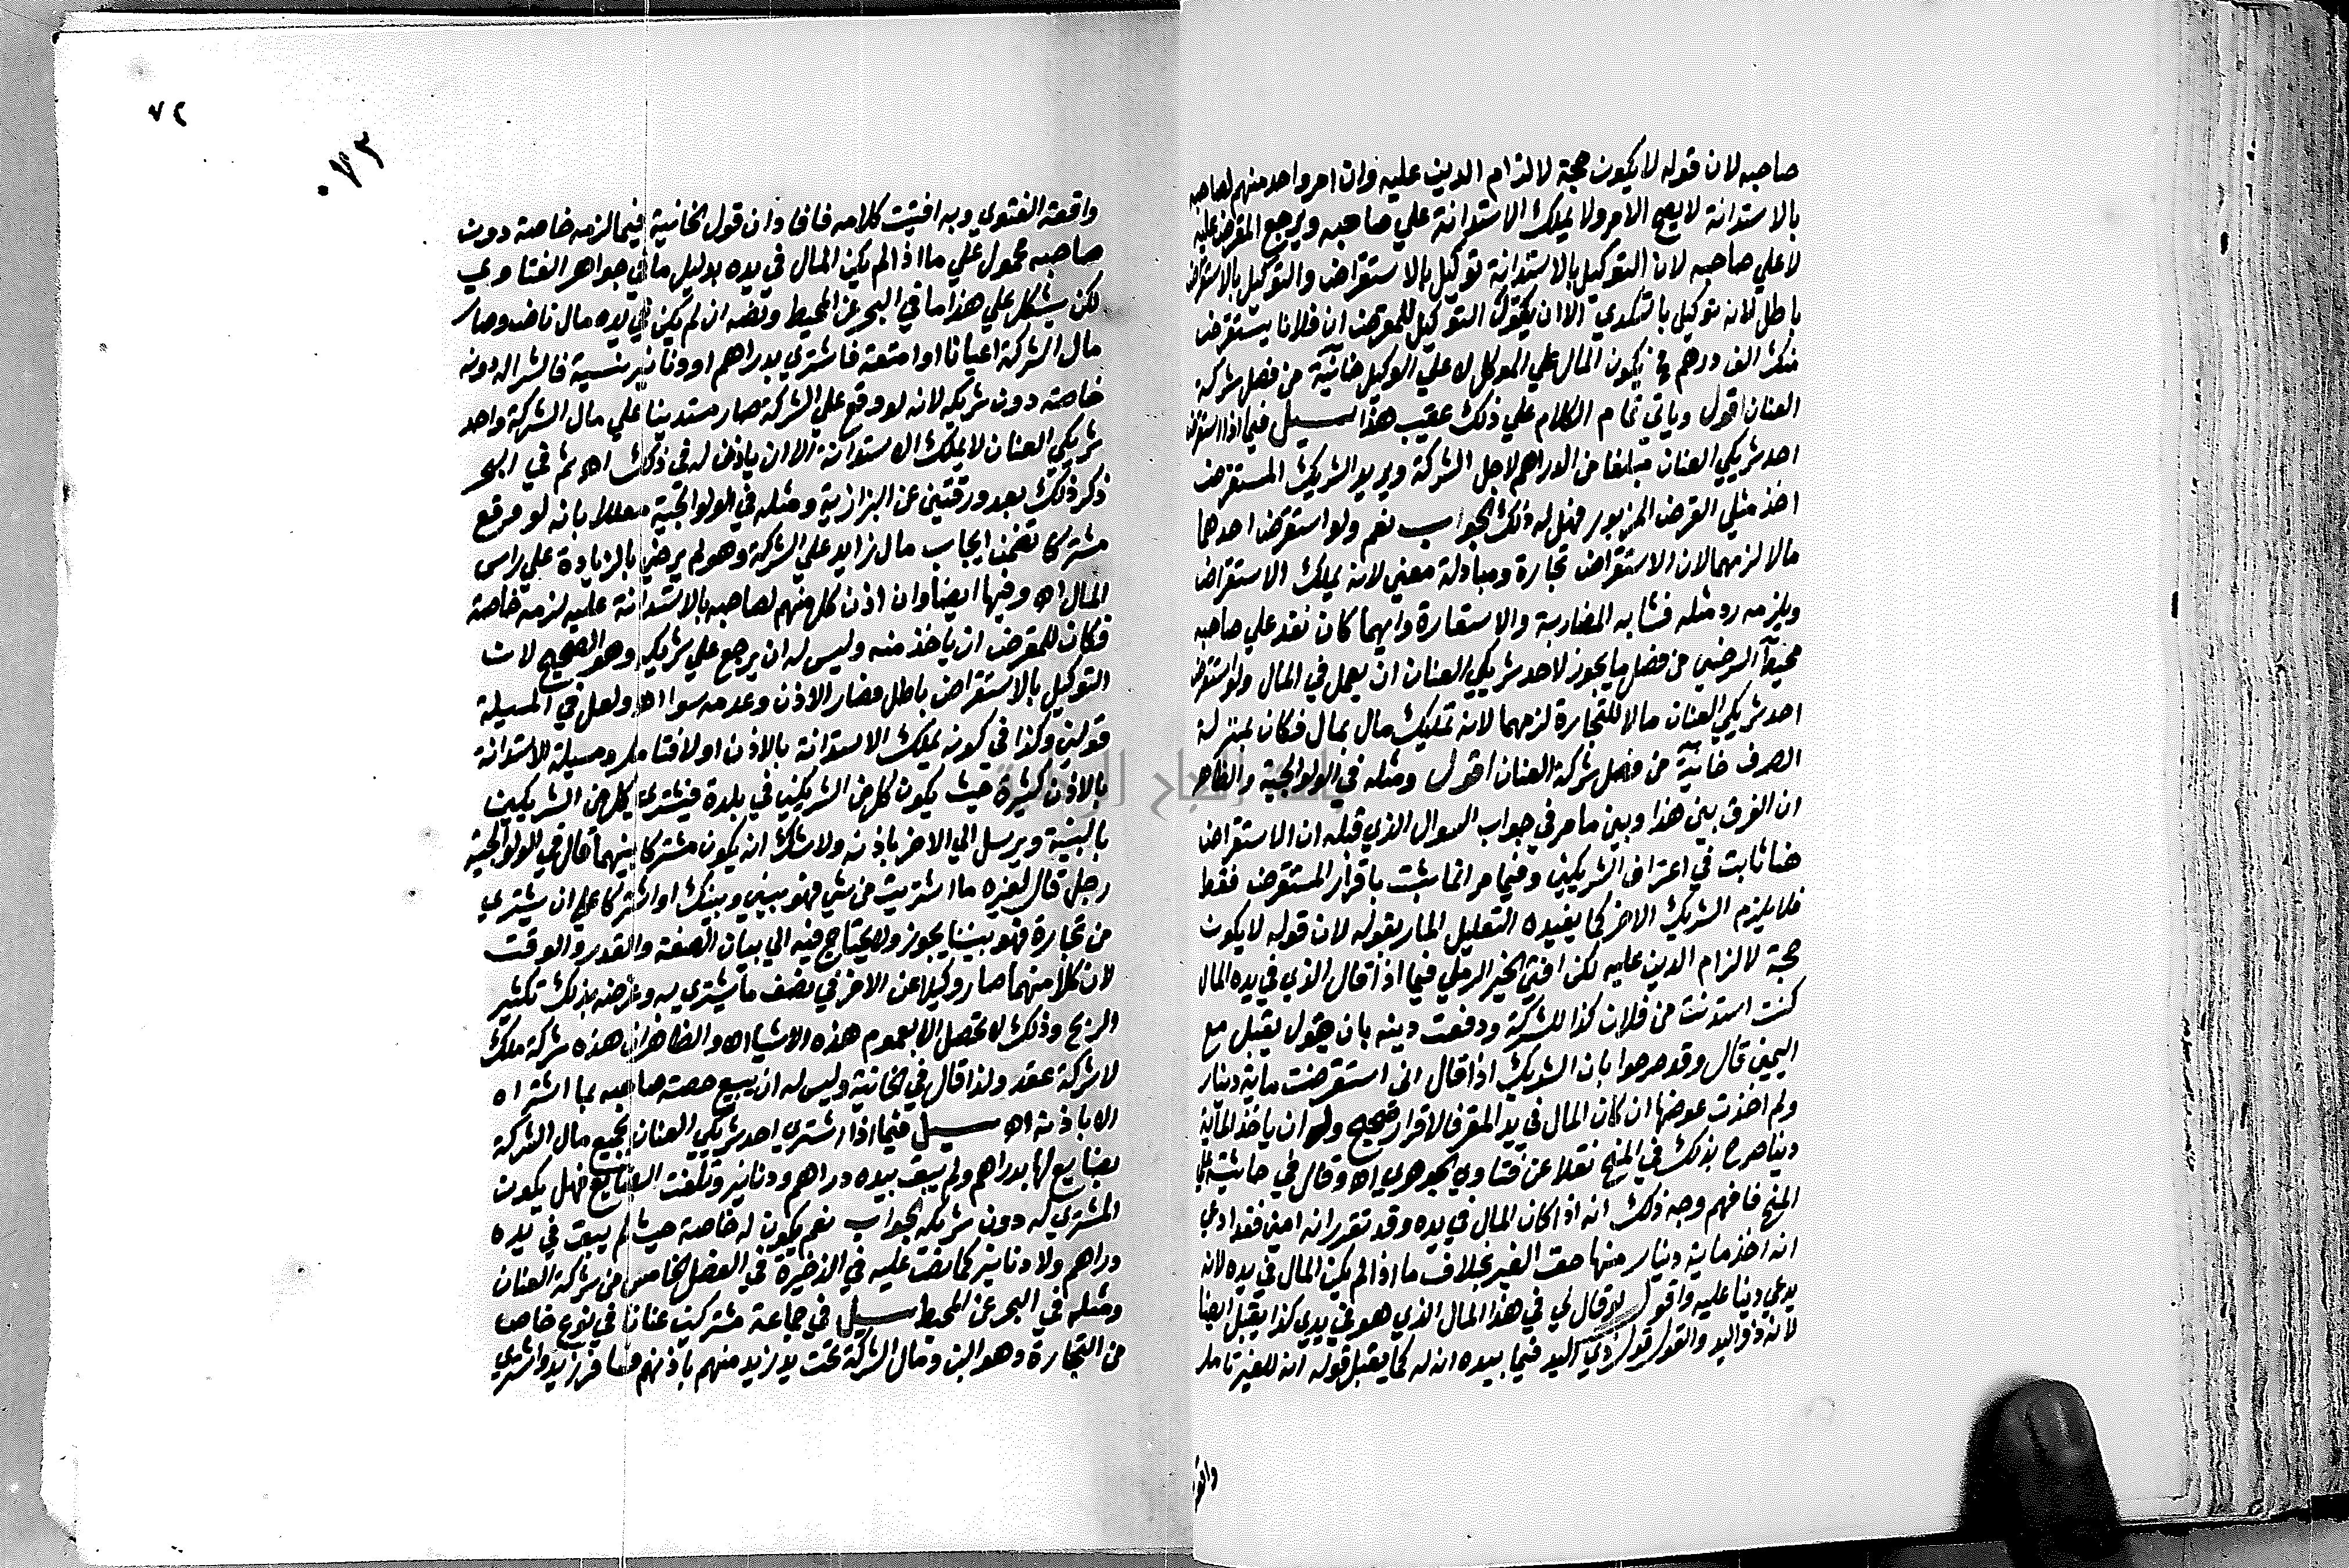 صاحبه لان قوله لا يكون حجة لالزام الدين عليه وان امر واحد منهم لصاحبه
بالاستدانة لا يصح الامر ولا يملك الاستدانة علي صاحبه ويرجع المقرض عليه
لا علي صاحبه لان التوكيل بالاستدانة توكيل بالاستقراض والتوكيل بالاستقراض
باطل لانه توكيل بالتكدي الا ان يقول التوكيل للمقرض ان فلانا يستقرض
منك الف درهم فح يكون المال علي الموكل لا علي الوكيل خانية من فصل شركة
العنان اقول وياتي تمام الكلام علي ذلك عقيب هذا سيل فيما اذا استقرض
احد شريكي العنان مبلغا من الدراهم لاجل الشركة ويريد الشريك المستقرض
اخذ مثلي القرض المزبور فهل له ذلك الجواب نعم ولو استقرض احدهما
مالا لزمهما لان الاستقراض تجارة ومبادلة معني لانه يملك الاستقراض
ويلزمه رد مثله فشابه المضاربة والاستعارة وايهما كان نفد علي صاحبه
محيط السرخسي من فصل ما يجوز لاحد شريكي العنان ان يعمل في المال ولو استقرض
احد شريكي العنان مالا للتجارة لزمهما لانه تمليك مال بمال فكان بمنزلة
الصرف خانية من فصل شركة العنان اقول ومثله في الولوالجية والظاهر
ان الفرق بين هذا وبين ما مر في جواب السوال الذي قبله ان الاستقراض
هنا ثابت في اعتراف الشريكين وفيما مر انما يثبت باقرار المستقرض فقط
فلا يلزم الشريك الاخر كما يفيده التعليل المار بقوله لان قوله لا يكون
حجة لالزام الدين عليه لكن افتي الخير الرملي فيما اذا قال الذي في يده المال
كنت استدنت من فلان كذا للشركة ودفعت دينه بان القول يقبل مع
اليمين قال وقد صرحوا بان الشريك اذا قال اني استقرضت ماية دينار
ولم اخذت عوضها ان كان المال في يد المقر فالاقرار صحيح وله ان ياخذ الماية
دينا صرح بذلك في المنح نقلا عن فتاوي الجوهري اه وقال في حاشيته علي
المنح فافهم وجه ذلك انه اذا كان المال في يده وقد تقرر انه امين فقد ادعي
انه اخذ ماية دينار منها حق الغير بخلاف ما اذا لم يكن المال في يده لانه
يدعي دينا عليه واقول لو قال لي في هذا المال الذي هو في يدي كذا يقبل ايضا
لانه ذو اليد والقول قول ذي اليد فيما بيده انه له كما يقبل قوله انه للغير تامل
واقعة
٧٢
٠٧٢
واقعة الفتوي وبه افتيت كلامه فافاد ان قول الخانية فيما لزمه خاصة دون
صاحبه محمول علي ما اذا لم يكن المال في يده بدليل ما في جواهر الفتاوي
لكن يشكل علي هذا ما في البحر عن المحيط ونصه ان لم يكن في يده مال ناض وصار
مال الشركة اعيانا او امتعة فاشتري بدراهم او دنانير نسية فالشرا له دونه
خاصة دون شريكه لانه لو وقع علي الشركة صار مستدينا علي مال الشركة واحد
شريكي العنان لا يملك الاستدانة الا ان ياذن له في ذلك اه ثم في البحر
ذكر ذلك بعد ورقتين عن البزازية ومثله في الولوالجية معللا بانه لو وقع
مشتركا تضمن ايجاب مال زايد علي الشركة وهو لم يرض بالزيادة علي راس
المال اه وفيها ايضا وان اذن كل منهم لصاحبه بالاستدانة عليه لزمه خاصة
فكان للمقرض ان ياخذ منه وليس له ان يرجع علي شريكه وهو الصحيح لان
التوكيل بالاستقراض باطل فصار الاذن وعدمه سوا اه ولعل في المسيلة
قولين وكذا في كونه يملك الاستدانة بالاذن اولا فتامل ومسيلة الاستدانة
بالاذن كثيرة حيث يكون كل من الشريكين في بلدة فيشتري كل من الشريكين
بالنسية ويرسل الي الاخر باذنه ولا شك انه يكون مشتركا بينهما قال في الولوالجية
رجل قال لغيره ما اشتريت من شي فهو بيني وبينك او اشتركا علي ان يشتري
من تجارة فهو بيننا يجوز ولا يحتاج فيه الي بيان الصفة والقدر والوقت
لان كلا منهما صار وكيلا عن الاخر في نصف ما يشتريه وغرضه بذلك تكثير
الربح وذلك لا يحصل الا بعموم هذه الاشيا اه والظاهر ان هذه شركة ملك
لا شركة عقد ولذا قال في الخانية وليس له ان يبيع حصة صاحبه بما اشتراه
الا باذنه اه سيل فيما اذا اشتري احد شريكي العنان بجميع مال الشركة
بضايع لها بدراهم ولم يبق بيده دراهم ودنانير وتلفت البضايع فهل يكون
المشتري له دون شريكه الجواب نعم يكون له خاصة حيث لم يبق في يده
دراهم ولا دنانير كما نص عليه في الذخيرة في الفصل الخامس من شركة العنان
ومثله في البحر عن المحيط سيل في جماعة مشتركين عنانا في نوع خاص
من التجارة وهو البن ومال الشركة تحت يد زيد منهم باذنهم فسافر زيد واشتري